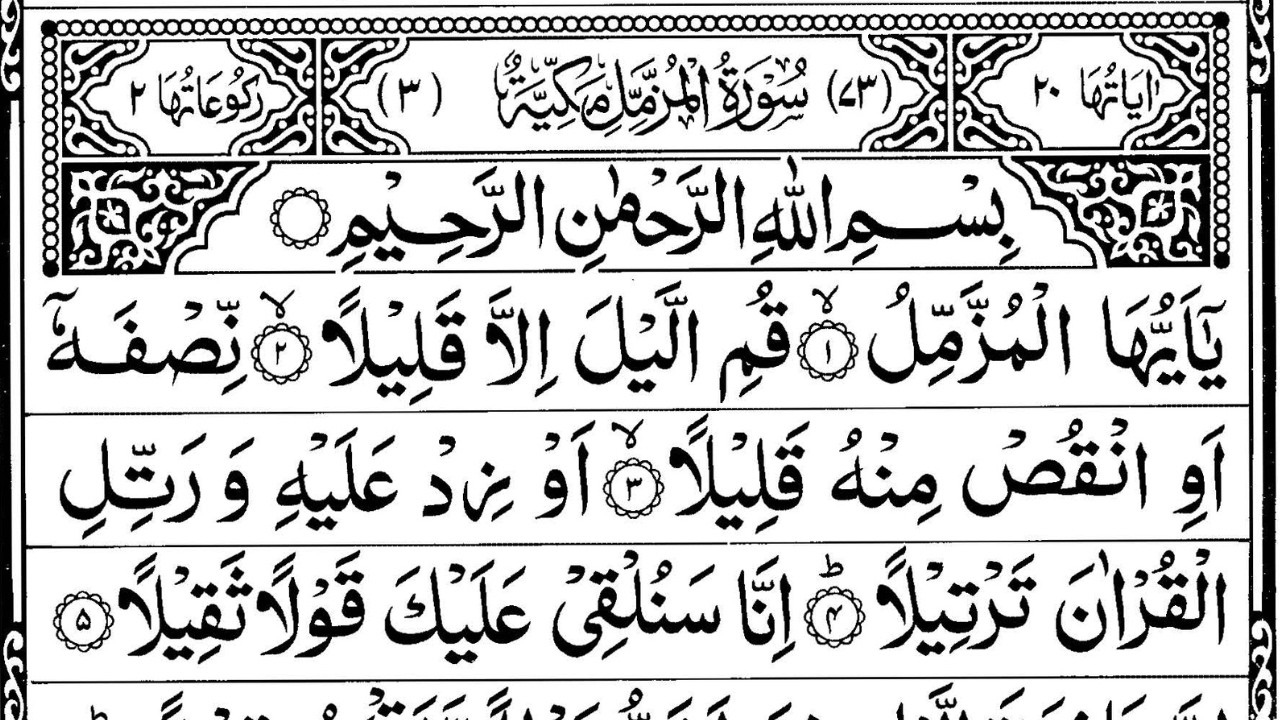 اٰيَاتُهَا ٢٠ (٧٣) سُوْرَةُ الْمُزَّمِّلِ مَكِّيَّةٌ (٣) رُكُوْعَاتُهَا ٢
بِسْمِ اللّٰهِ الرَّحْمٰنِ الرَّحِيْمِ
يٰۤاَيُّهَا الْمُزَّمِّلُ ۙ‏ ١ قُمِ الَّيْلَ اِلَّا قَلِيْلًا ۙ‏ ٢ نِّصْفَهٗۤ
اَوِ انْقُصْ مِنْهُ قَلِيْلًا ۙ‏ ٣ اَوْ زِدْ عَلَيْهِ وَ رَتِّلِ
الْقُرْاٰنَ تَرْتِيْلًا ؕ‏ ۴ اِنَّا سَنُلْقِىْ عَلَيْكَ قَوْلًا ثَقِيْلًا ۵